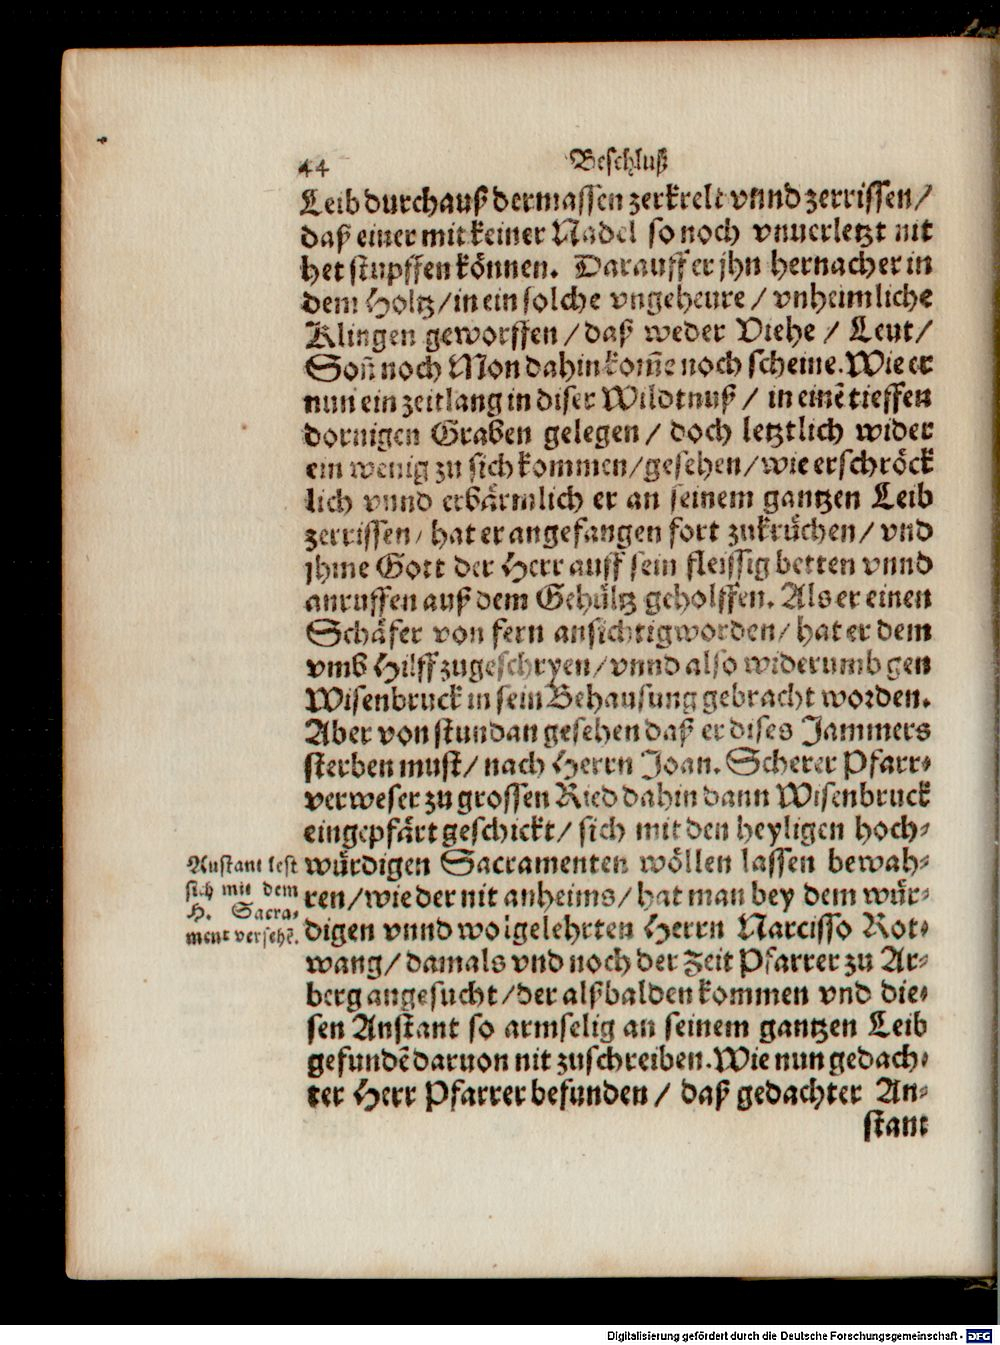 44 Beschluß
Leib durchauß dermassen zerkrelt vnnd zerrissen/
daß einer mit keiner Nadel so noch vnuerletzt nit
het stupffen können. Darauff er jhn hernacher in
dem Holtz/ in ein solche vngeheure/ vnheimliche
Klingen geworffen/ daß weder Viehe/ Leut/
Soñ noch Mon dahin kom̃e noch scheine. Wie er
nun ein zeitlang in diser Wildtnuß/ in einẽ tieffen
dornigen Graben gelegen/ doch letztlich wider
ein wenig zu sich kommen/ gesehen/ wie erschröck
lich vnnd erbärmlich er an seinem gantzen Leib
zerrissen/ hat er angefangen fort zukrüchen/ vnd
jhme Gott der Herr auff sein fleissig betten vnnd
anruffen auß dem Gehültz geholffen. Als er einen
Schäfer von fern ansichtig worden/ hat er dem
vmb Hilff zugeschryen/ vnnd also widerumb gen
Wisenbruck in sein Behausung gebracht worden.
Aber von stundan gesehen daß er dises Jammers
sterben must/ nach Herrn Joan. Scherer Pfarr-
verweser zu grossen Ried dahin dann Wisenbruck
eingepfärt geschickt/ sich mit den heyligen hoch-
würdigen Sacramenten wöllen lassen bewah-
ren/ wie der nit anheims/ hat man bey dem wür-
digen vnnd wolgelehrten Herrn Narcisso Rot-
wang/ damals vnd noch der Zeit Pfarrer zu Ar-
berg angesucht/ der alßbalden kommen vnd die-
sen Anstant so armselig an seinem gantzen Leib
gefundẽ daruon nit zuschreiben. Wie nun gedach-
ter Herr Pfarrer befunden/ daß gedachter An-
stant
Anstant lest
sich mit dem
H. Sacra-
ment versehẽ.
Digitalisierung gefördert durch die Deutsche Forschungsgemeinschaft - DFG